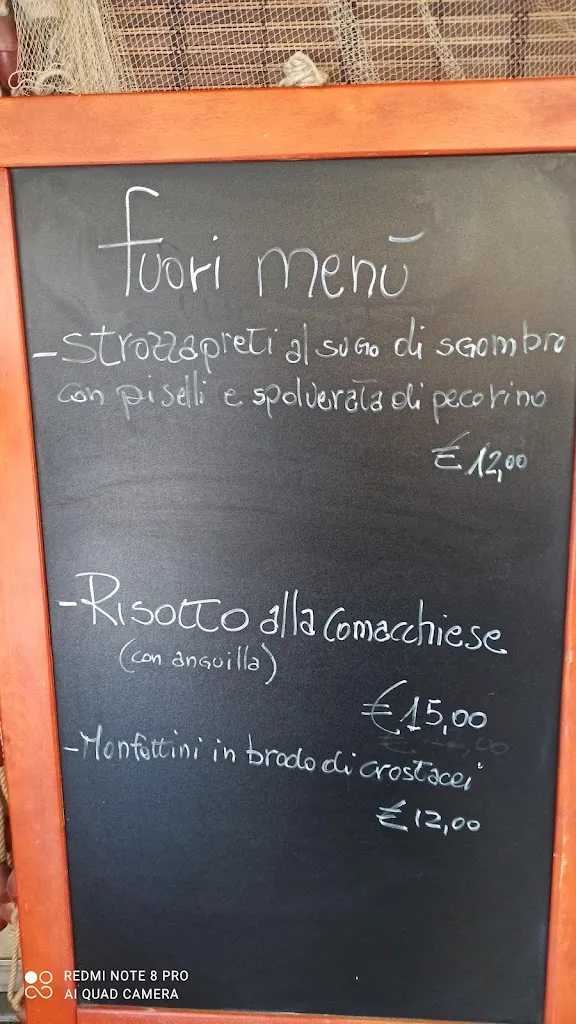 Fuori menù
- Strozzapreti al sugo di sgombro
con piselli e spolverata di pecorino
€ 12,00
- Risotto alla comacchiese
(con anguilla)
€ 15,00
- Monfettini in brodo di crostacei
€ 12,00
REDMI NOTE 8 PRO
AI QUAD CAMERA